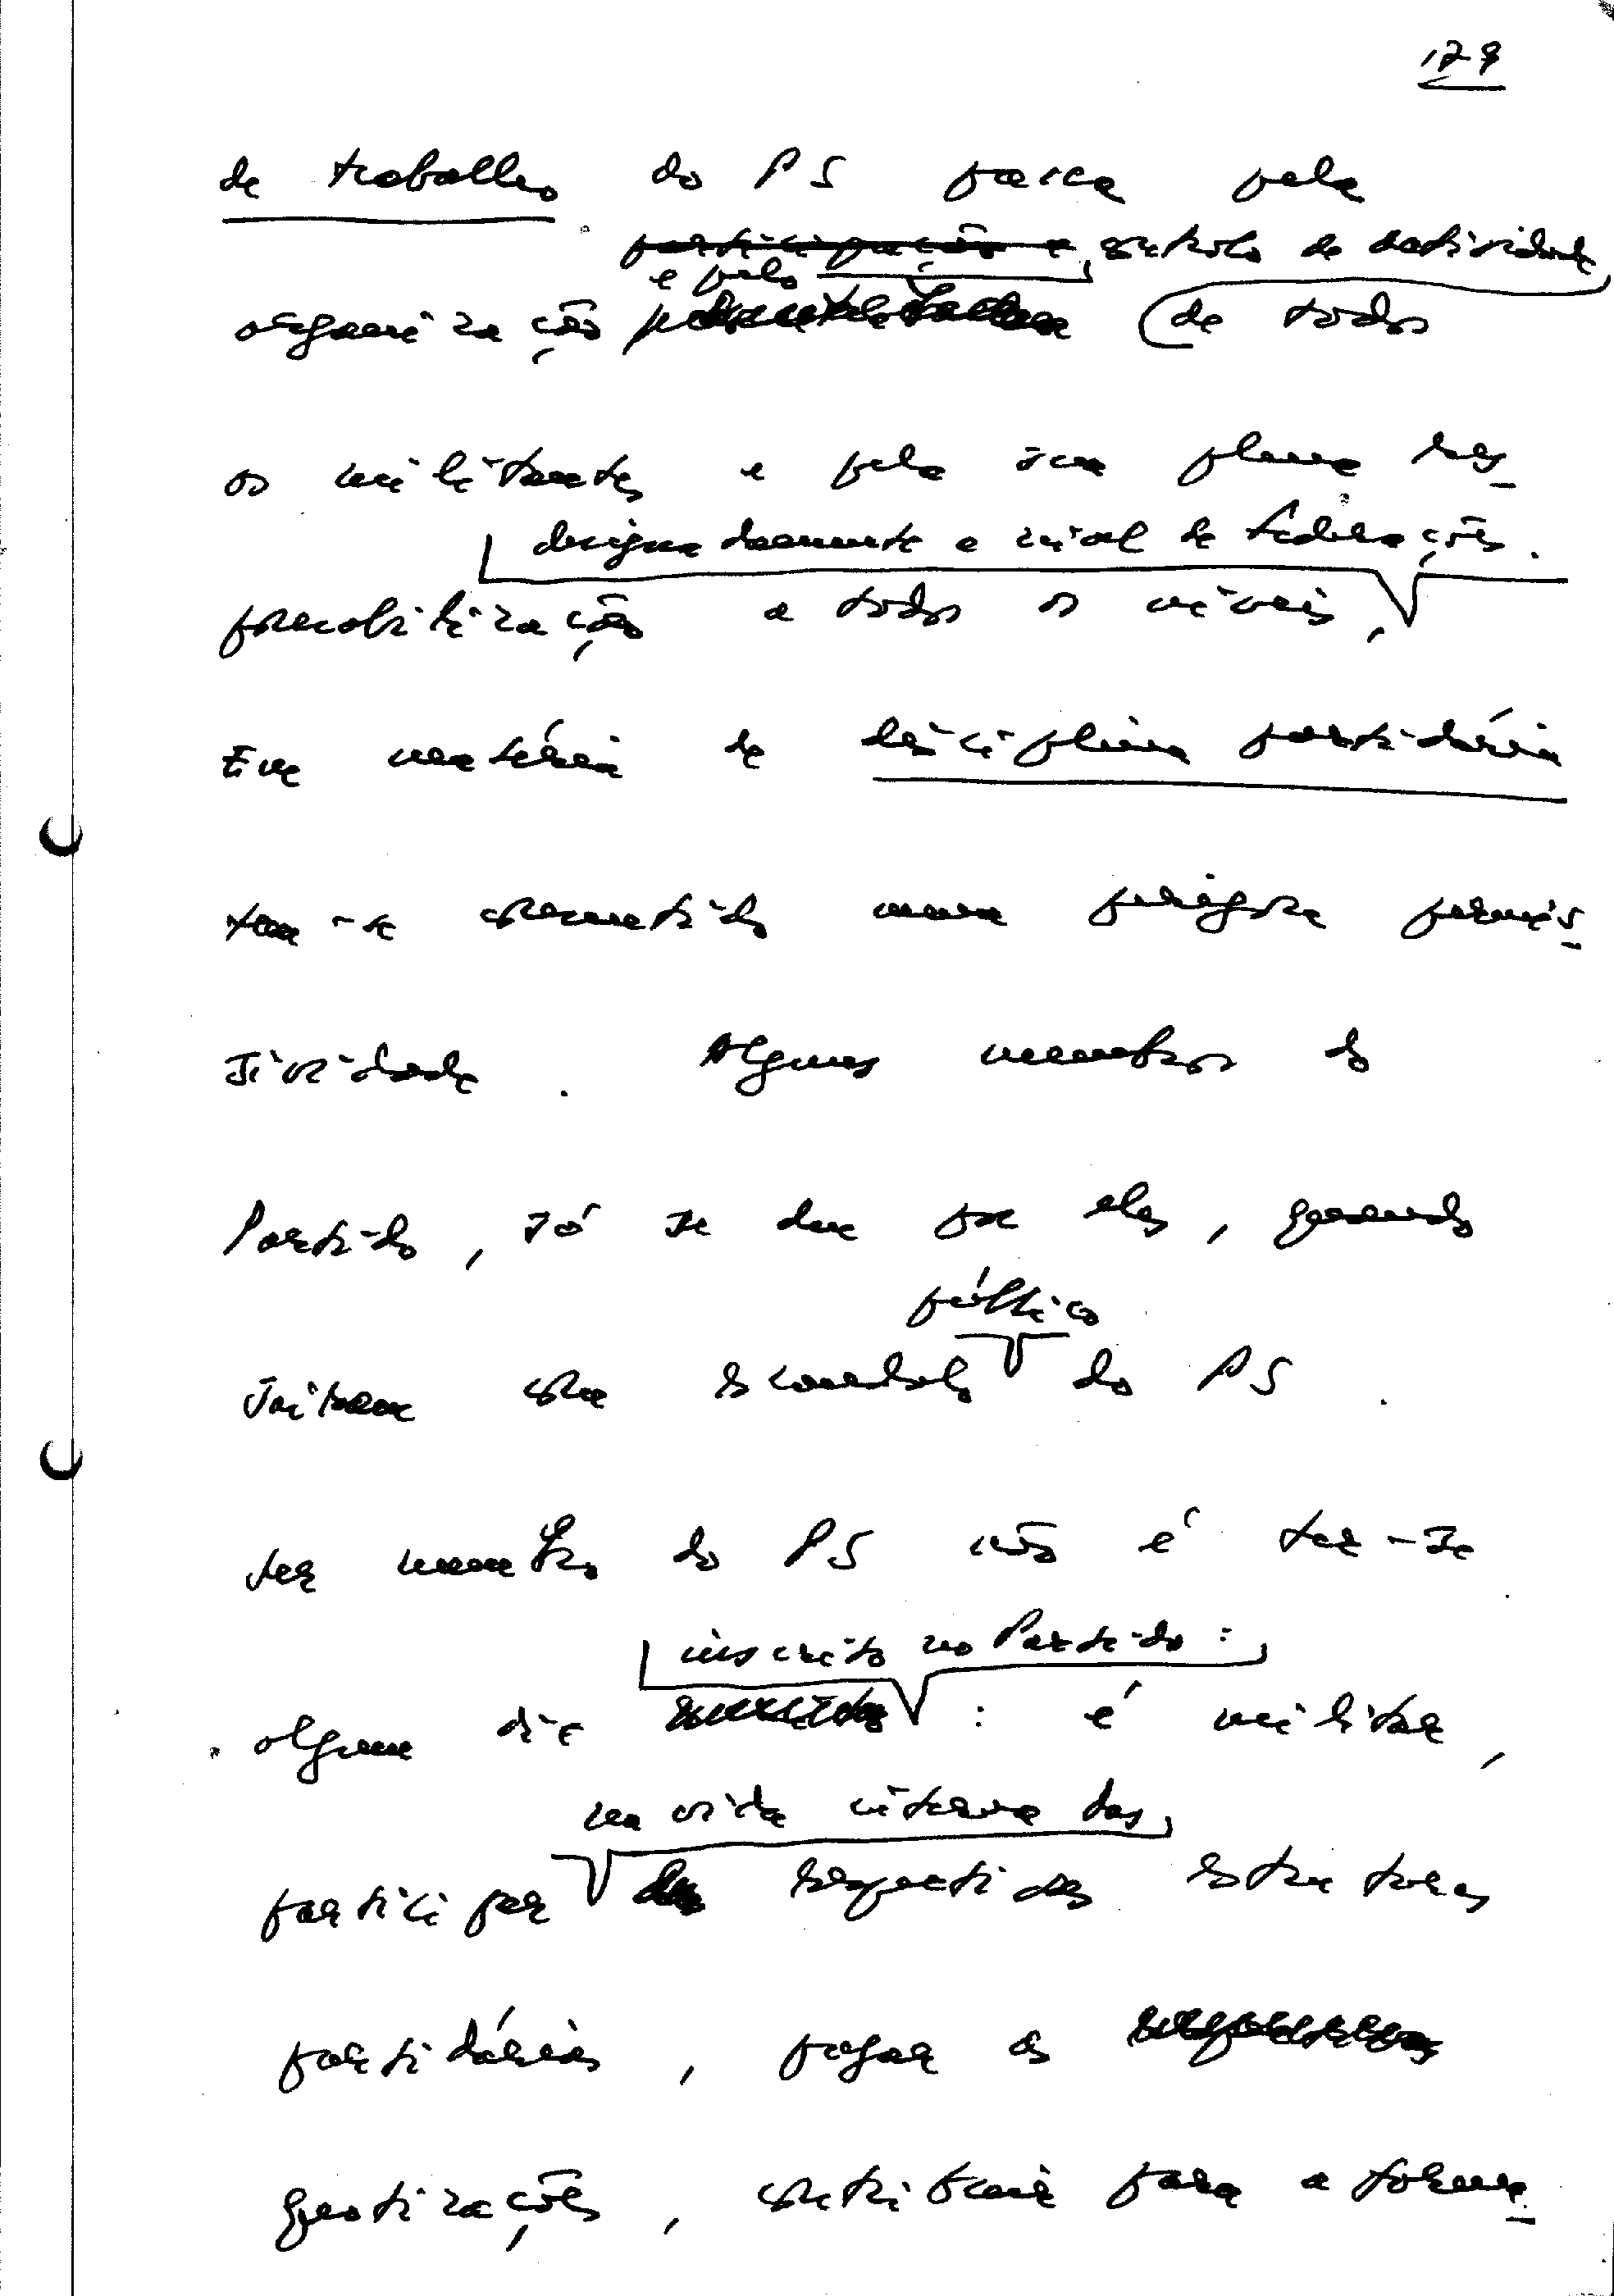 179
de trabalho do PS passa pela
participação e controlo da actividade
e pelo
organização de todos
os militantes e pela sua plena res-
designadamente a nível de Federações.
ponsabilização a todos os níveis,
Em matéria de disciplina partidária
tem-se consentido numa perigosa permis-
sividade. Alguns membros do
Partido, só se deu por eles, quando
público
saíram com escândalo do PS.
Ser membro do PS não é ter-se
inscrito no Partido:
algum dia : é militar,
na vida interna das
participar respectivas estruturas
partidárias, pagar as
quotizações, contribuir para a forma-